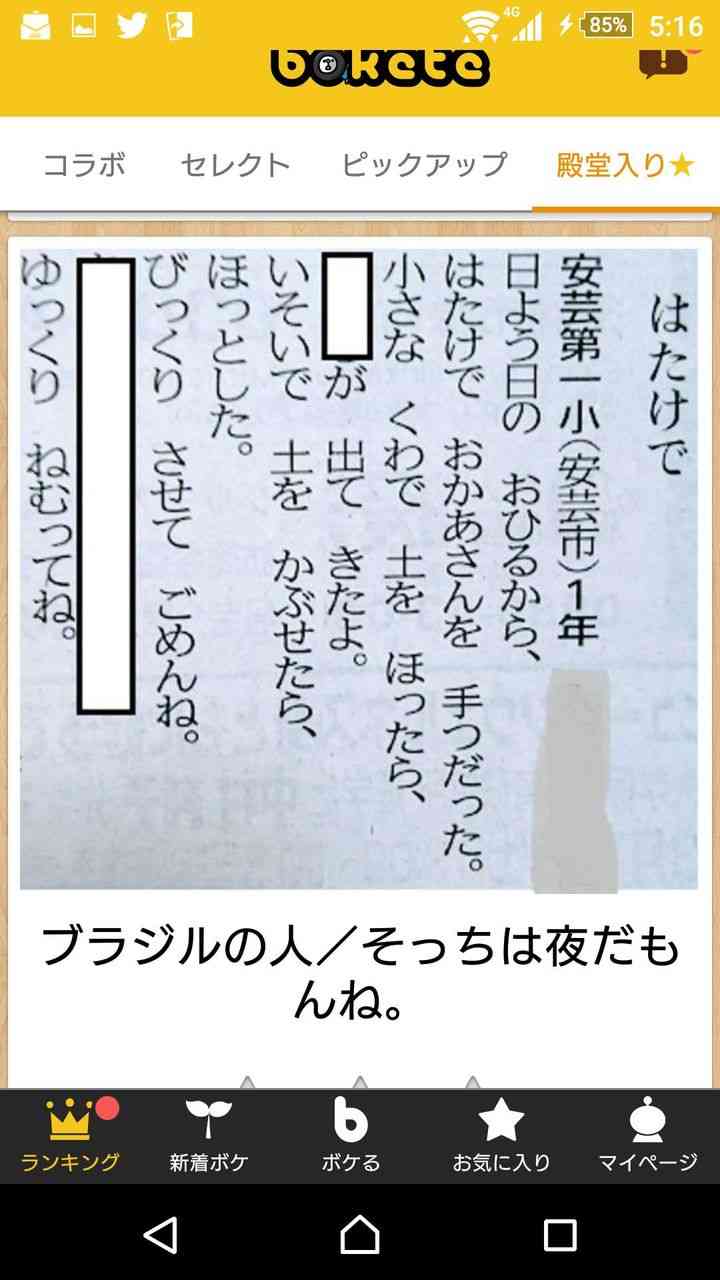 4G
85%
5:16
bokete
コラボ
セレクト
ピックアップ
殿堂入り★
はたけで
安芸第一小(安芸市)1年
日よう日の　おひるから、
はたけで　おかあさんを　手つだった。
小さな　くわで　土を　ほったら、
が　出て　きたよ。
いそいで　土を　かぶせたら、
ほっとした。
びっくり　させて　ごめんね。
ゆっくり　ねむってね。
ブラジルの人／そっちは夜だも
んね。
ランキング
新着ボケ
ボケる
お気に入り
マイページ